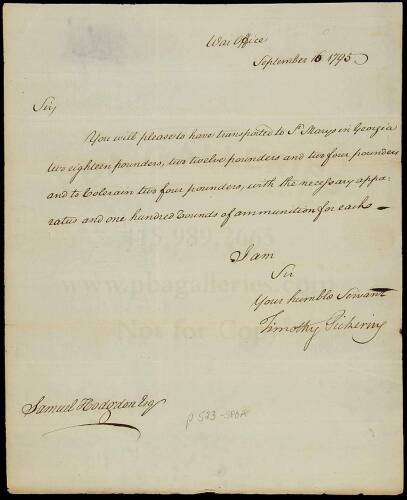 War Office
September 16 1795
Sir
You will please to have transported to St Marys in Georgia
two eighteen pounders, two twelve pounders and two four pounders
and to Colerain two four pounders, with the necessary appa-
ratus and one hundred rounds of ammunition for each
415.989.2665
I am
Sir
www.pbagalleries.com
Your humble Servant
Not for
Timothy Pickering
Samuel Hodgdon Esq
p 523